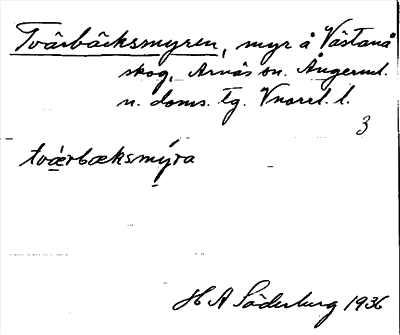 Tvärbäcksmyren, myr å Västanå
skog, Arnäs sn. Ångerml.
n. doms. tg. Vnorrl. l.
3
tvǽrbæksmýra
H A Söderberg 1936